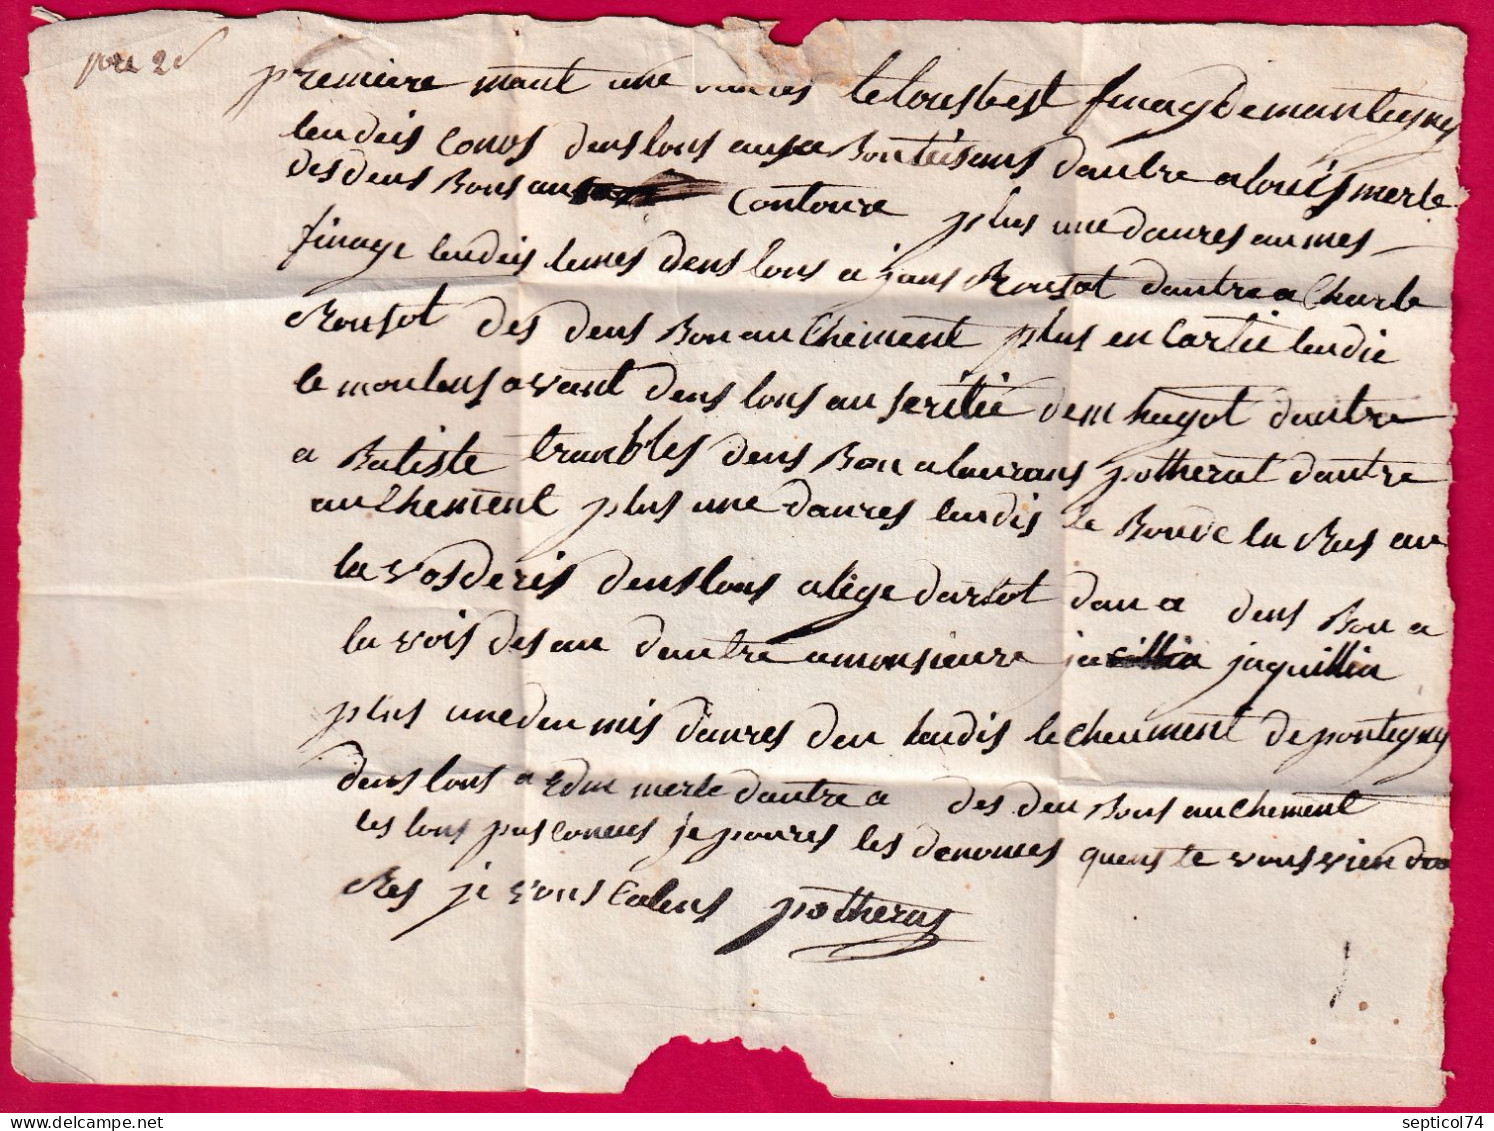 pre 2d
premiere mant une danres letousbest finag demantigny
leudeis Conos dens lons ausa Bonteisans dautre alouis merle
des deus Bous au Contoure plus une danres au mes
finage leudeis lames dens lons a jans Rousot dautre a Charle
Rousot des deus Bou au Chement plus en Cartie leudie
le moulens avant dens lons au feritie dem hugot dautre
a Batiste trambles dens Bou a laurans potherat dautre
au Chement plus une danres leudis le Boude la Rus au
la vosderis dens lons a liege darlot dau a dens Bou a
la vois des au dautre a monsieure jaquillin
plus une deu mis danres deu leudis le cheument de pontigny
dens lons a Edme merle dautre a des deu Bous au Chement
les lons pas Conues je poures les denomes quens le vous vien dro
Res je vous Calens potherat
septicol74